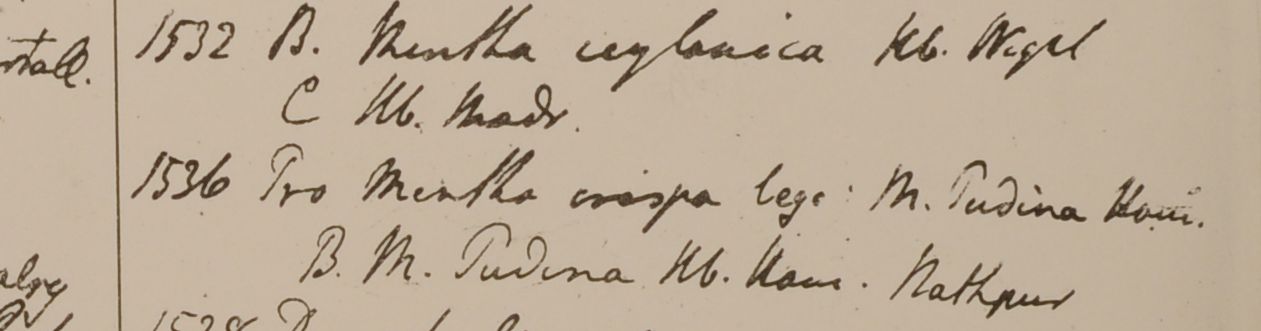 1532 B. Mentha zeylanica Hb. Wight
C Hb. Madr.
1536 Pro Mentha crispa lege: M. Pudina Ham.
B. M. Pudina Hb. Ham. Nathpur